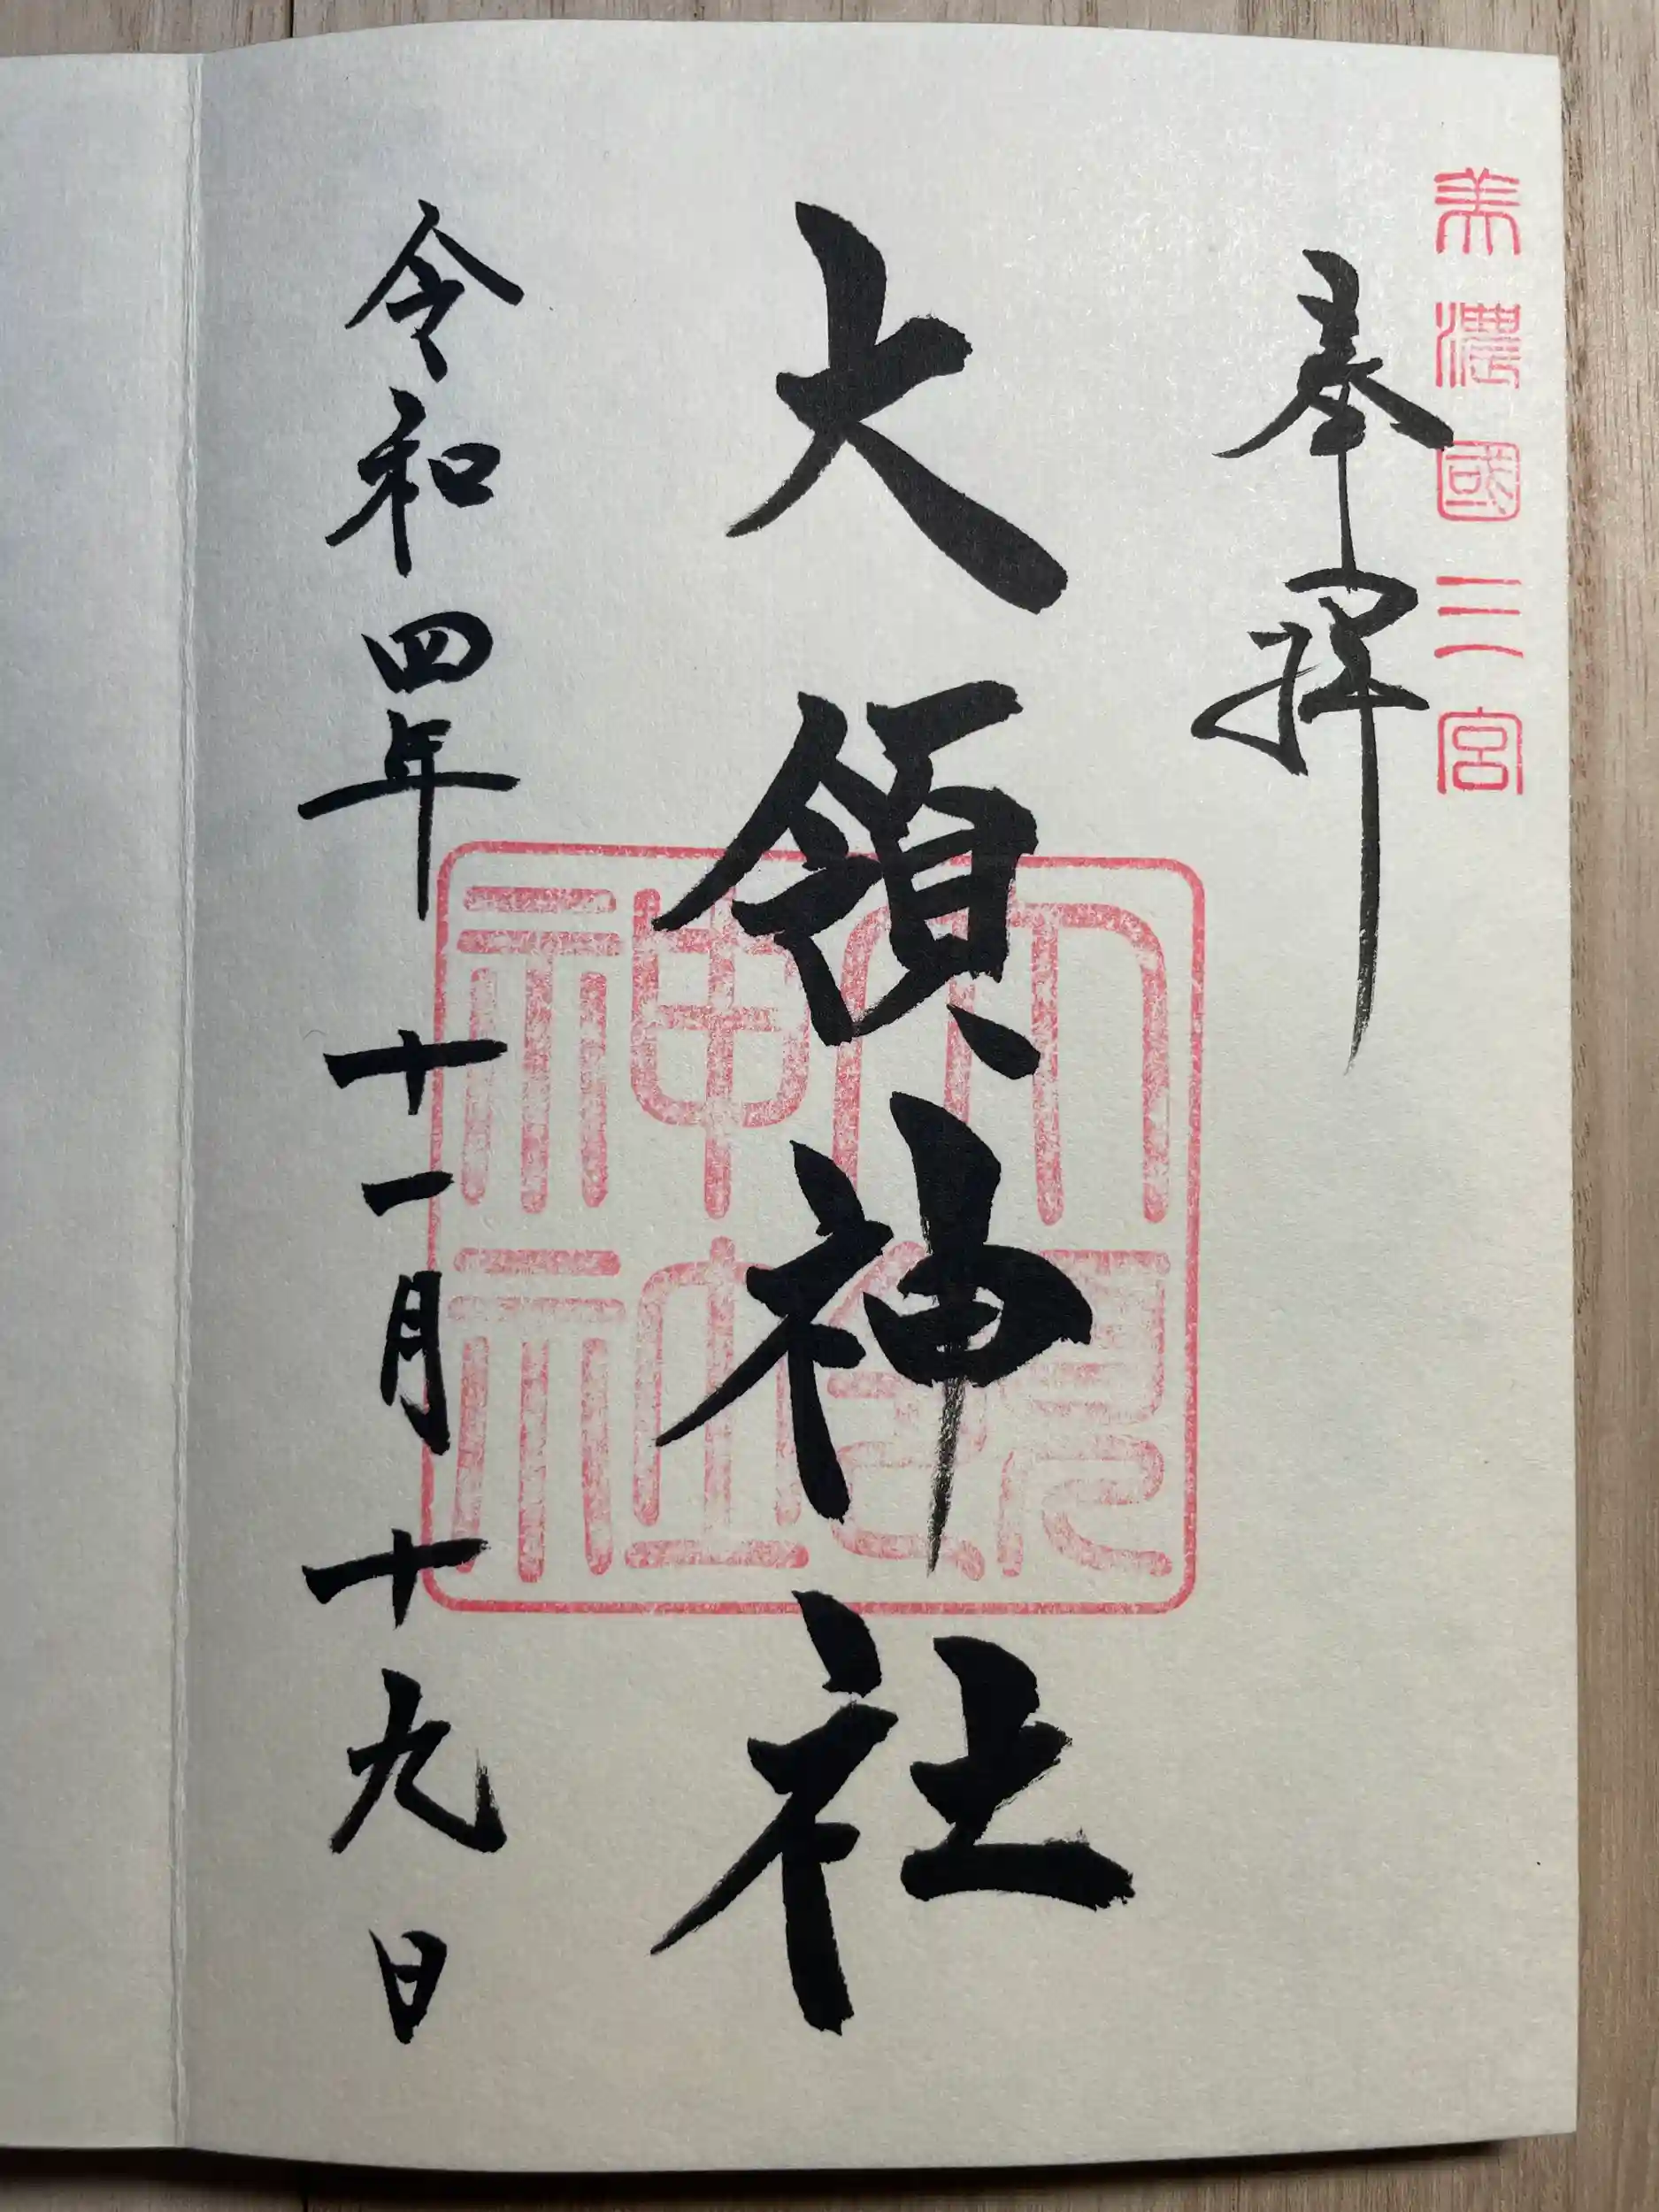 美濃國三宮
奉拝
大領神社
大領神社
令和四年十一月十九日